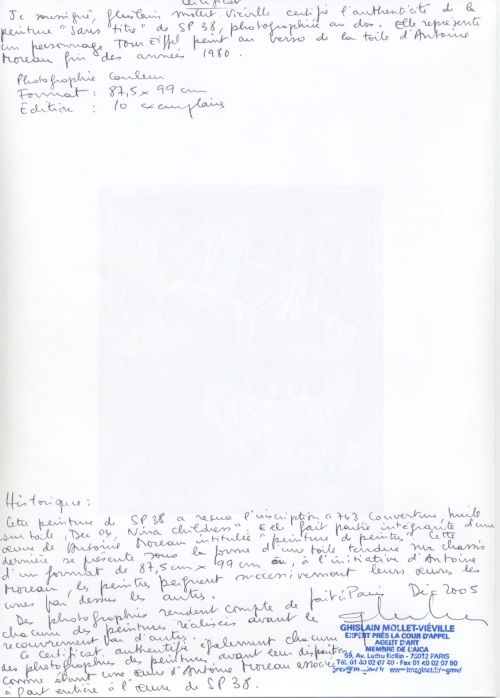 Certificat
Je soussigné, Ghislain Mollet-Viéville certifie l'authenticité de la
peinture "sans titre" de SP 38, photographiée au dos. Elle représente
un personnage Tour Eiffel peint au verso de la toile d'Antoine
Moreau fin des années 1980.
Photographie Couleur
Format : 87,5 x 99 cm
Édition : 10 exemplaires
Historique :
Cette peinture de SP 38 a reçue l'inscription "743 Couverture, huile
sur toile, Dec 04, Nina Childress". Elle fait partie intégrante d'une
œuvre de Antoine Moreau intitulée "peinture de peintres". Cette
dernière se présente sous la forme d'une toile tendue sur chassis
d'un format de 87,5cm x 99 cm où, à l'initiative d'Antoine
Moreau, les peintres peignent successivement leurs œuvres les
unes par dessus les autres.
fait à Paris Déc 2005
Des photographies rendent compte de
chacune des peintures réalisées avant le
recouvrement par d'autres.
Ce certificat authentifie également chacune
des photographies des peintures, avant leur disparition,
comme étant une œuvre d'Antoine Moreau associée
à part entière à l'œuvre de SP 38.
GHISLAIN MOLLET-VIÉVILLE
EXPERT PRÈS LA COUR D'APPEL
AGENT D'ART
MEMBRE DE L'AICA
59, Av. Ledru Rollin - 75012 PARIS
Tél. 01 40 02 07 40 - Fax 01 40 02 07 50
www.imaginet.fr/~gmv/